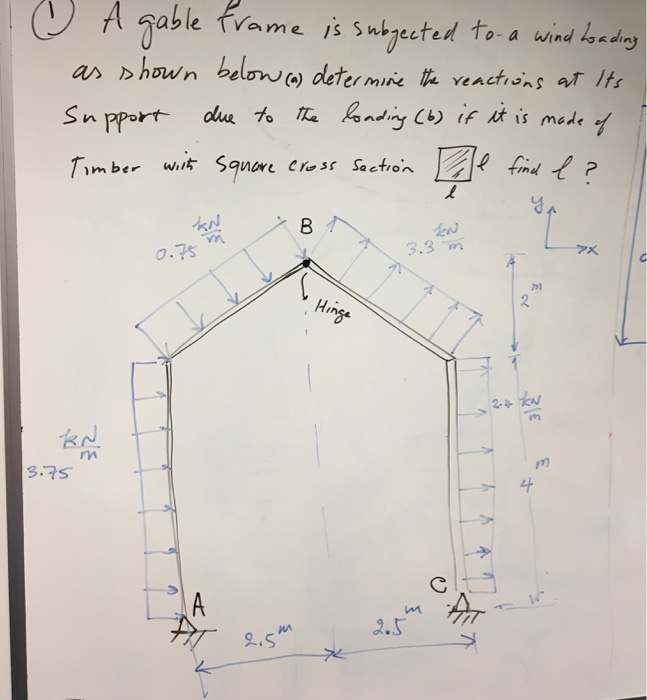 ① A gable frame is subjected to a wind loading
as shown below (a) determine the reactions at Its
Support due to the loading (b) if it is made of
Timber with square cross section l find l ?
l
y
x
kN/m
0.75
B
kN/m
3.3
2 m
Hinge
2.4 kN/m
kN/m
3.75
4 m
A
C
2.5 m
2.5 m